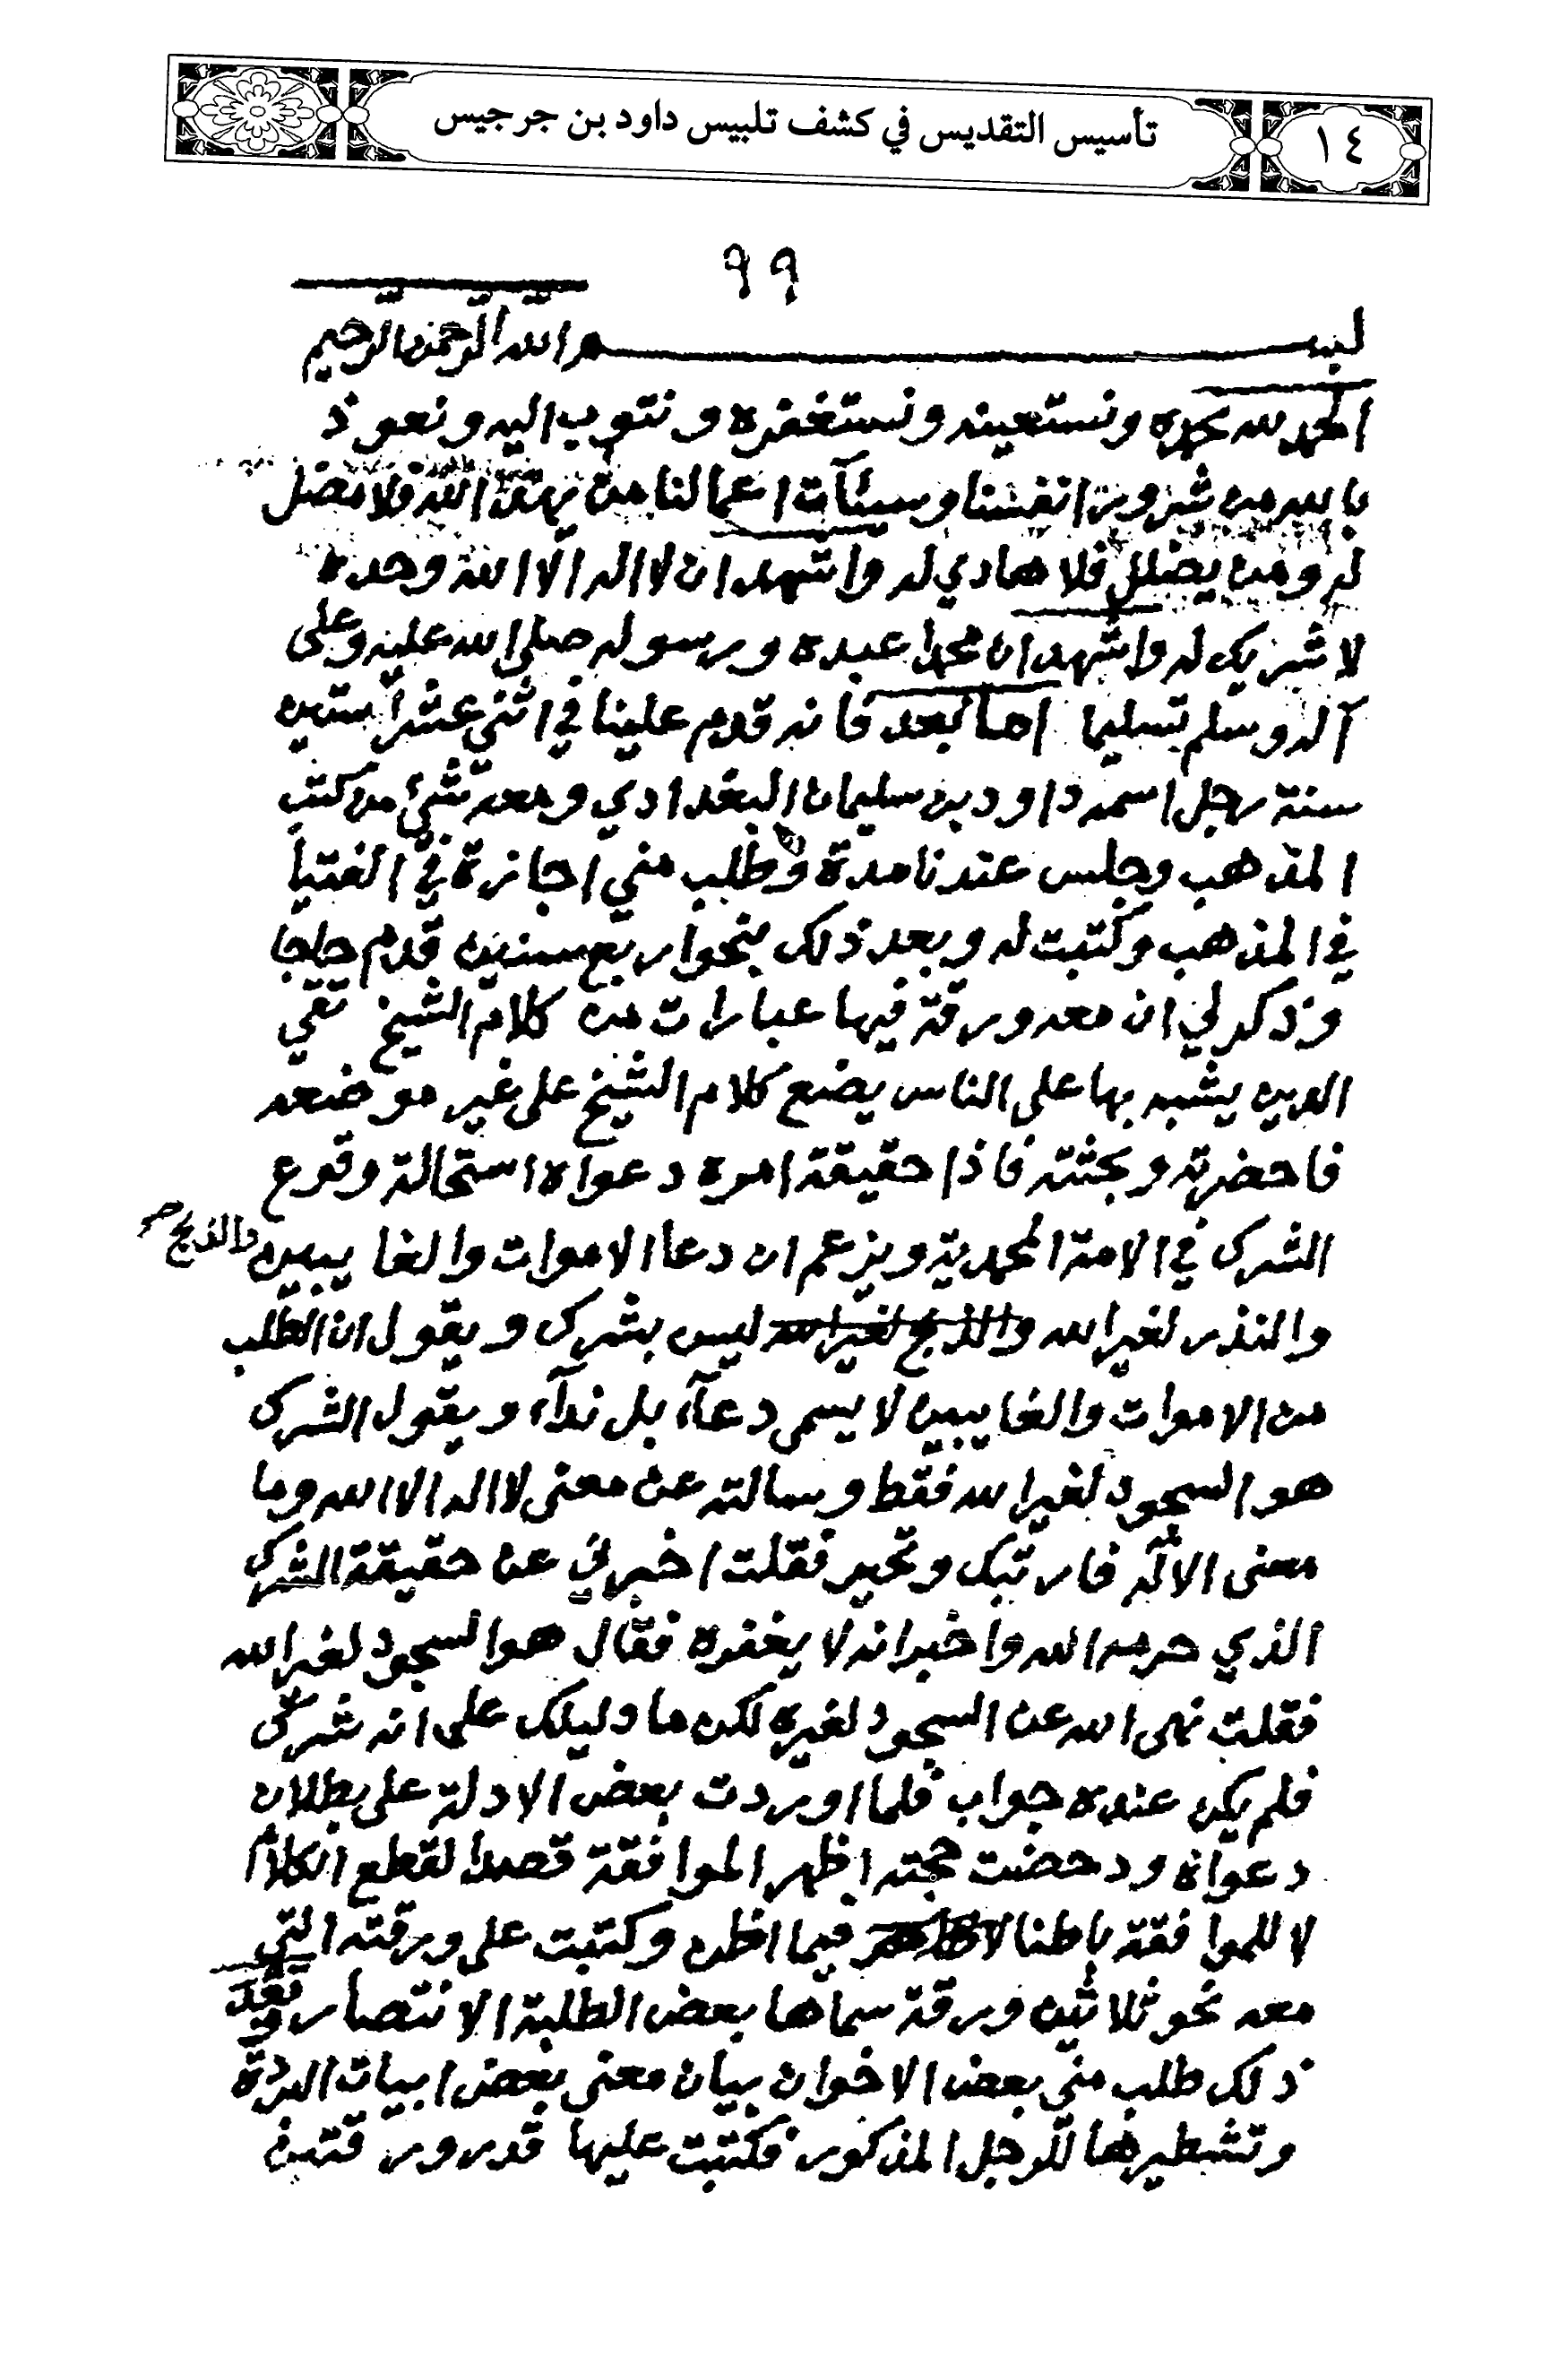 ١٤
تأسيس التقديس في كشف تلبيس داود بن جرجيس
٩٩
بسم الله الرحمن الرحيم
الحمد لله نحمده ونستعينه ونستغفره ونتوب اليه ونعوذ
بالله من شرور انفسنا وسيئآت اعمالنا من يهد الله فلا مضل
له ومن يضلل فلا هادي له واشهد ان لا اله الا الله وحده
لا شريك له واشهد ان محمدا عبده ورسوله صلى الله عليه وعلى
آله وسلم تسليما اما بعد فانه قدم علينا في اثني عشر ستين
سنة رجل اسمه داود بن سليمان البغدادي ومعه شئ من كتب
المذهب وجلس عندنا مدة وطلب مني اجازة في الفتيا
في المذهب وكتبت له وبعد ذلك بنحو اربع سنين قدم حاجا
وذكر لي ان معه ورقة فيها عبارات من كلام الشيخ تقي
الدين يشبه بها على الناس يضع كلام الشيخ على غير موضعه
فاحضرته وبحثته فاذا حقيقة امره دعواه استحالة وقوع
الشرك في الامة المحمدية ويزعم ان دعا الاموات والغايبين والذبح صح
والنذر لغير الله والذبح لغير الله ليس بشرك ويقول ان الطلب
من الاموات والغايبين لا يسمى دعآء بل ندآء ويقول الشرك
هو السجود لغير الله فقط وسالته عن معنى لا اله الا الله وما
معنى الاله فارتبك وتحير فقلت اخبرني عن حقيقة الشرك
الذي حرمه الله واخبر انه لا يغفره فقال هو السجود لغير الله
فقلت نهى الله عن السجود لغيره لكن ما دليلك على انه شرك
فلم يكن عنده جواب فلما اوردت بعض الادلة على بطلان
دعواه ودحضت حجته اظهر الموافقة قصدا لقطع الكلام
لا للموافقة باطنا فيما اظن وكتبت على ورقته التي
معه نحو ثلاثين ورقة سماها بعض الطلبة الانتصار وبعد
ذلك طلب مني بعض الاخوان بيان معنى بعض ابيات البردة
وتشطيرها للرجل المذكور فكتبت عليها قدر ورقتين